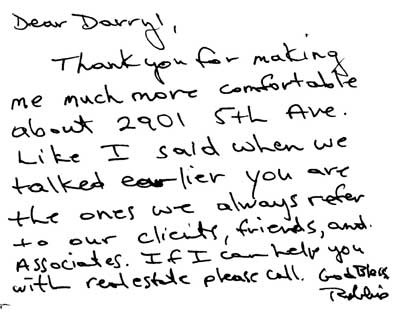 Dear Darryl,
Thank you for making
me much more comfortable
about 2901 5th Ave.
Like I said when we
talked earlier you are
the ones we always refer
to our clients, friends, and.
Associates. If I can help you
with real estate please call. God Bless